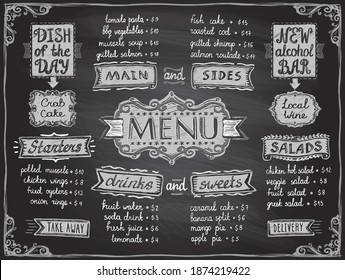 DISH
OF THE
DAY
Crab
Cake
tomato pasta $9
bbq wings $2
vegetables $2
soup $3
mussels soup $5
grilled salmon $8
fish cake $5
roasted cod $4
grilled shrimp $6
salmon roulade $4
NEW
alcohol
BAR
Local
Wine
MAIN and SIDES
MENU
Starters
polled mussels $10
chicken wings $8
fruit oysters $12
onion rings $4
SALADS
chicken hot salad $12
veggie salad $8
fruit salad $9
greek salad $15
drinks and sweets
fruit water $2
soda drink $3
fresh juice $6
lemonade $4
caramel cake $7
banana split $2
mango pie $8
apple pie $5
TAKE AWAY
DELIVERY
shutterstock
IMAGE ID: 1874219422
www.shutterstock.com